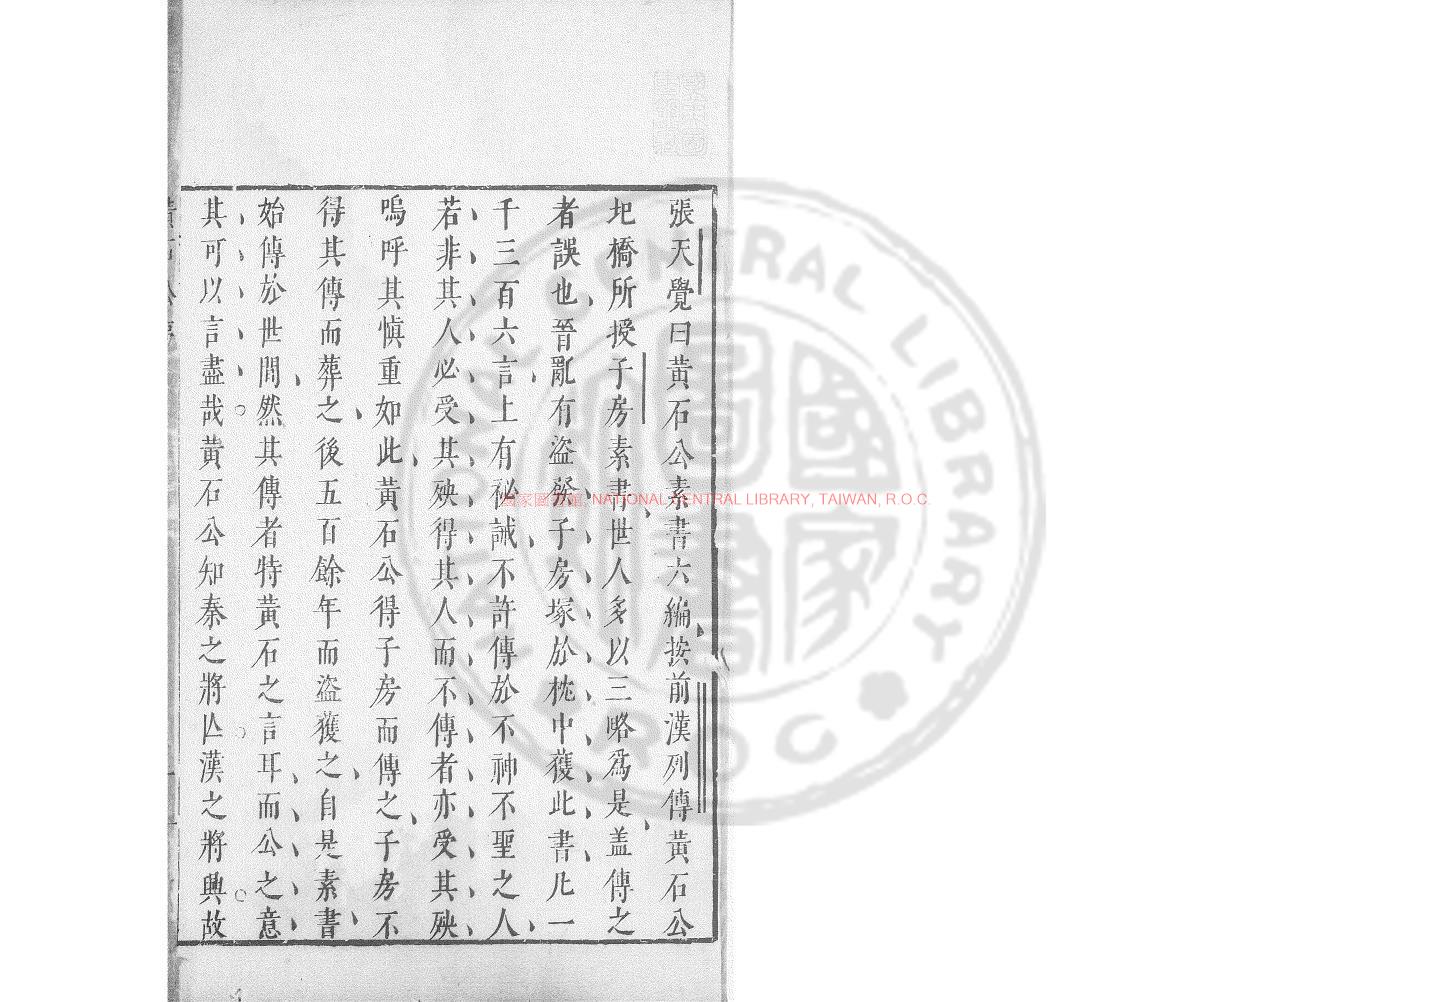 張天覺曰黃石公素書六編按前漢列傳黃石公
圯橋所授子房素書世人多以三略爲是盖傳之
者誤也晉亂有盜發子房塚於枕中獲此書凡一
千三百六言上有秘誡不許傳於不神不聖之人
若非其人必受其殃得其人而不傳者亦受其殃
嗚呼其愼重如此黃石公得子房而傳之子房不
得其傳而葬之後五百餘年而盜獲之自是素書
始傳於世間然其傳者特黃石之言耳而公之意
其可以言盡哉黃石公知秦之將亾漢之將興故
國家圖書館, NATIONAL CENTRAL LIBRARY, TAIWAN, R.O.C.
NATIONAL CENTRAL LIBRARY
R.O.C.
國家圖書